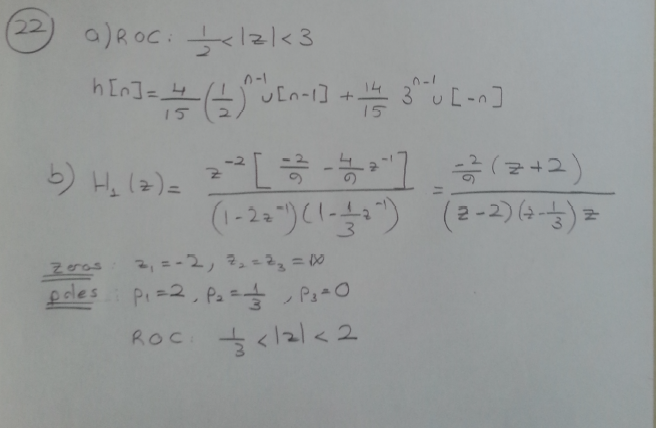 22
a) ROC: 1/2 < |z| < 3
h[n] = 4/15 (1/2)^n-1 u[n-1] + 14/15 3^n-1 u[-n]
b) H₁(z) = z^-2 [-2/9 - 4/9 z^-1] / (1-2z^-1)(1-1/3 z^-1) = -2/9 (z+2) / (z-2)(z-1/3)z
zeros : z₁=-2, z₂=z₃=∞
poles : p₁=2, p₂=1/3, p₃=0
ROC: 1/3 < |z| < 2